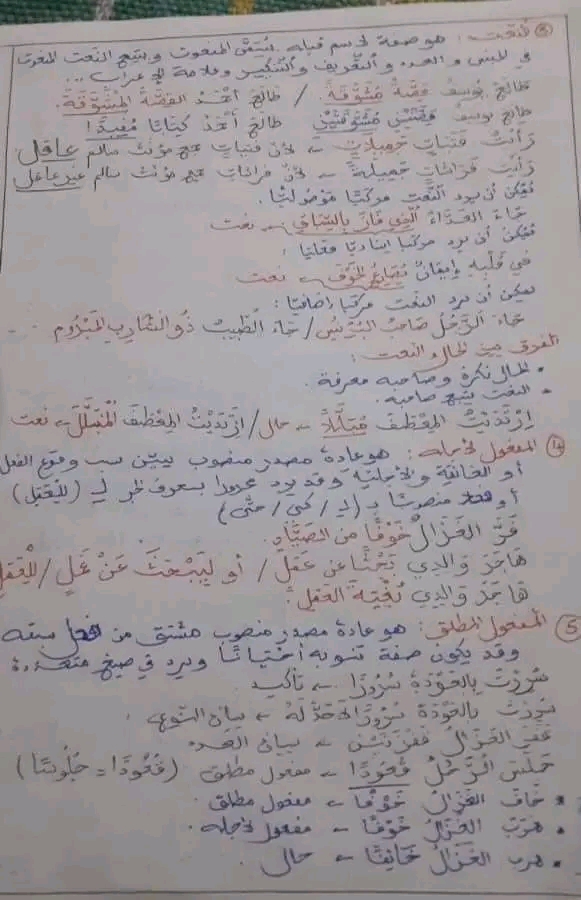 ③ النعت: هو صفة لاسم قبله يسمى المنعوت ويتبع النعت المنعوت
في الجنس والعدد والتعريف والتنكير وعلامة الإعراب...
طالع يوسف قصّةً مشوّقةً. / طالع أحمد القصّة المشوّقة.
طالع يوسف قصّتين مشوّقتين طالع أحمد كتابًا مفيدًا!
رأيت فتيات جميلات ← لأن فتيات جمع مؤنث سالم عاقل
رأيت فراشات جميلة ← لأن فراشات جمع مؤنث سالم غير عاقل
يُمكن أن يرد النّعت مركّبا موصوليّا.
جاء العدّاءُ الّذي فاز بالسّباق ← نعت
يُمكن أن يرد مركبا إسناديّا فعليّا:
في قلبه إيمانٌ يُصارع الخوف ← نعت
يمكن أن يرد النعت مركّبا إضافيّا:
جاء الرّجلُ صاحبُ البرنس / جاء الطّبيبُ ذو الشّارب المبروم
الفرق بين الحال والنعت:
• الحال نكرة وصاحبه معرفة.
• النعت يتبع صاحبه.
اِرتديتُ المعطفَ مُبلّلاً ← حال / اِرتديتُ المعطفَ المُبلّلَ ← نعت
④ المفعول لأجله: هو عادة مصدر منصوب يبيّن سبب وقوع الفعل
أو الغائية والأجلية وقد يرد مجرورا بحرف الجر لِـ (للعمل)
أو منصوبًا بـ (لِـ / كي / حتّى)
فرّ الغزالُ خوفًا من الصيّاد.
هاجر والدي بحثًا عن عمل / أو ليبحث عن عمل / للعمل
هاجر والدي بُغيةَ العمل.
⑤ المفعول المطلق: هو عادة مصدر منصوب مشتق من فعل سبقه
وقد يكون صفة تنوبه أحيانًا ويرد في صيغ متعددة
سُررتُ بالعودة سُرورًا ← تأكيد
سُررتُ بالعودة سُرورًا لا حدّ له ← بيان النّوع
قفز الغزالُ قفزتين ← بيان العدد
جلس الرّجلُ قُعودًا ← مفعول مطلق (قُعودًا = جُلوسًا)
• خاف الغزالُ خوفًا ← مفعول مطلق.
• هرب الغزالُ خوفًا ← مفعول لأجله.
• هرب الغزالُ خائفًا ← حال.